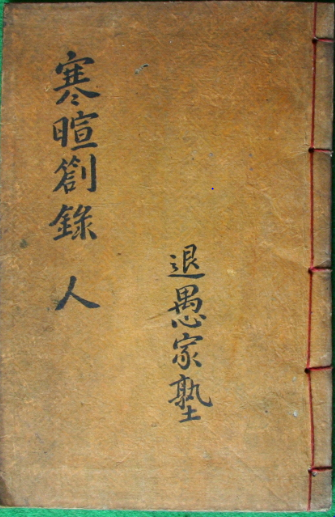 寒暄箚錄 人
退愚家塾